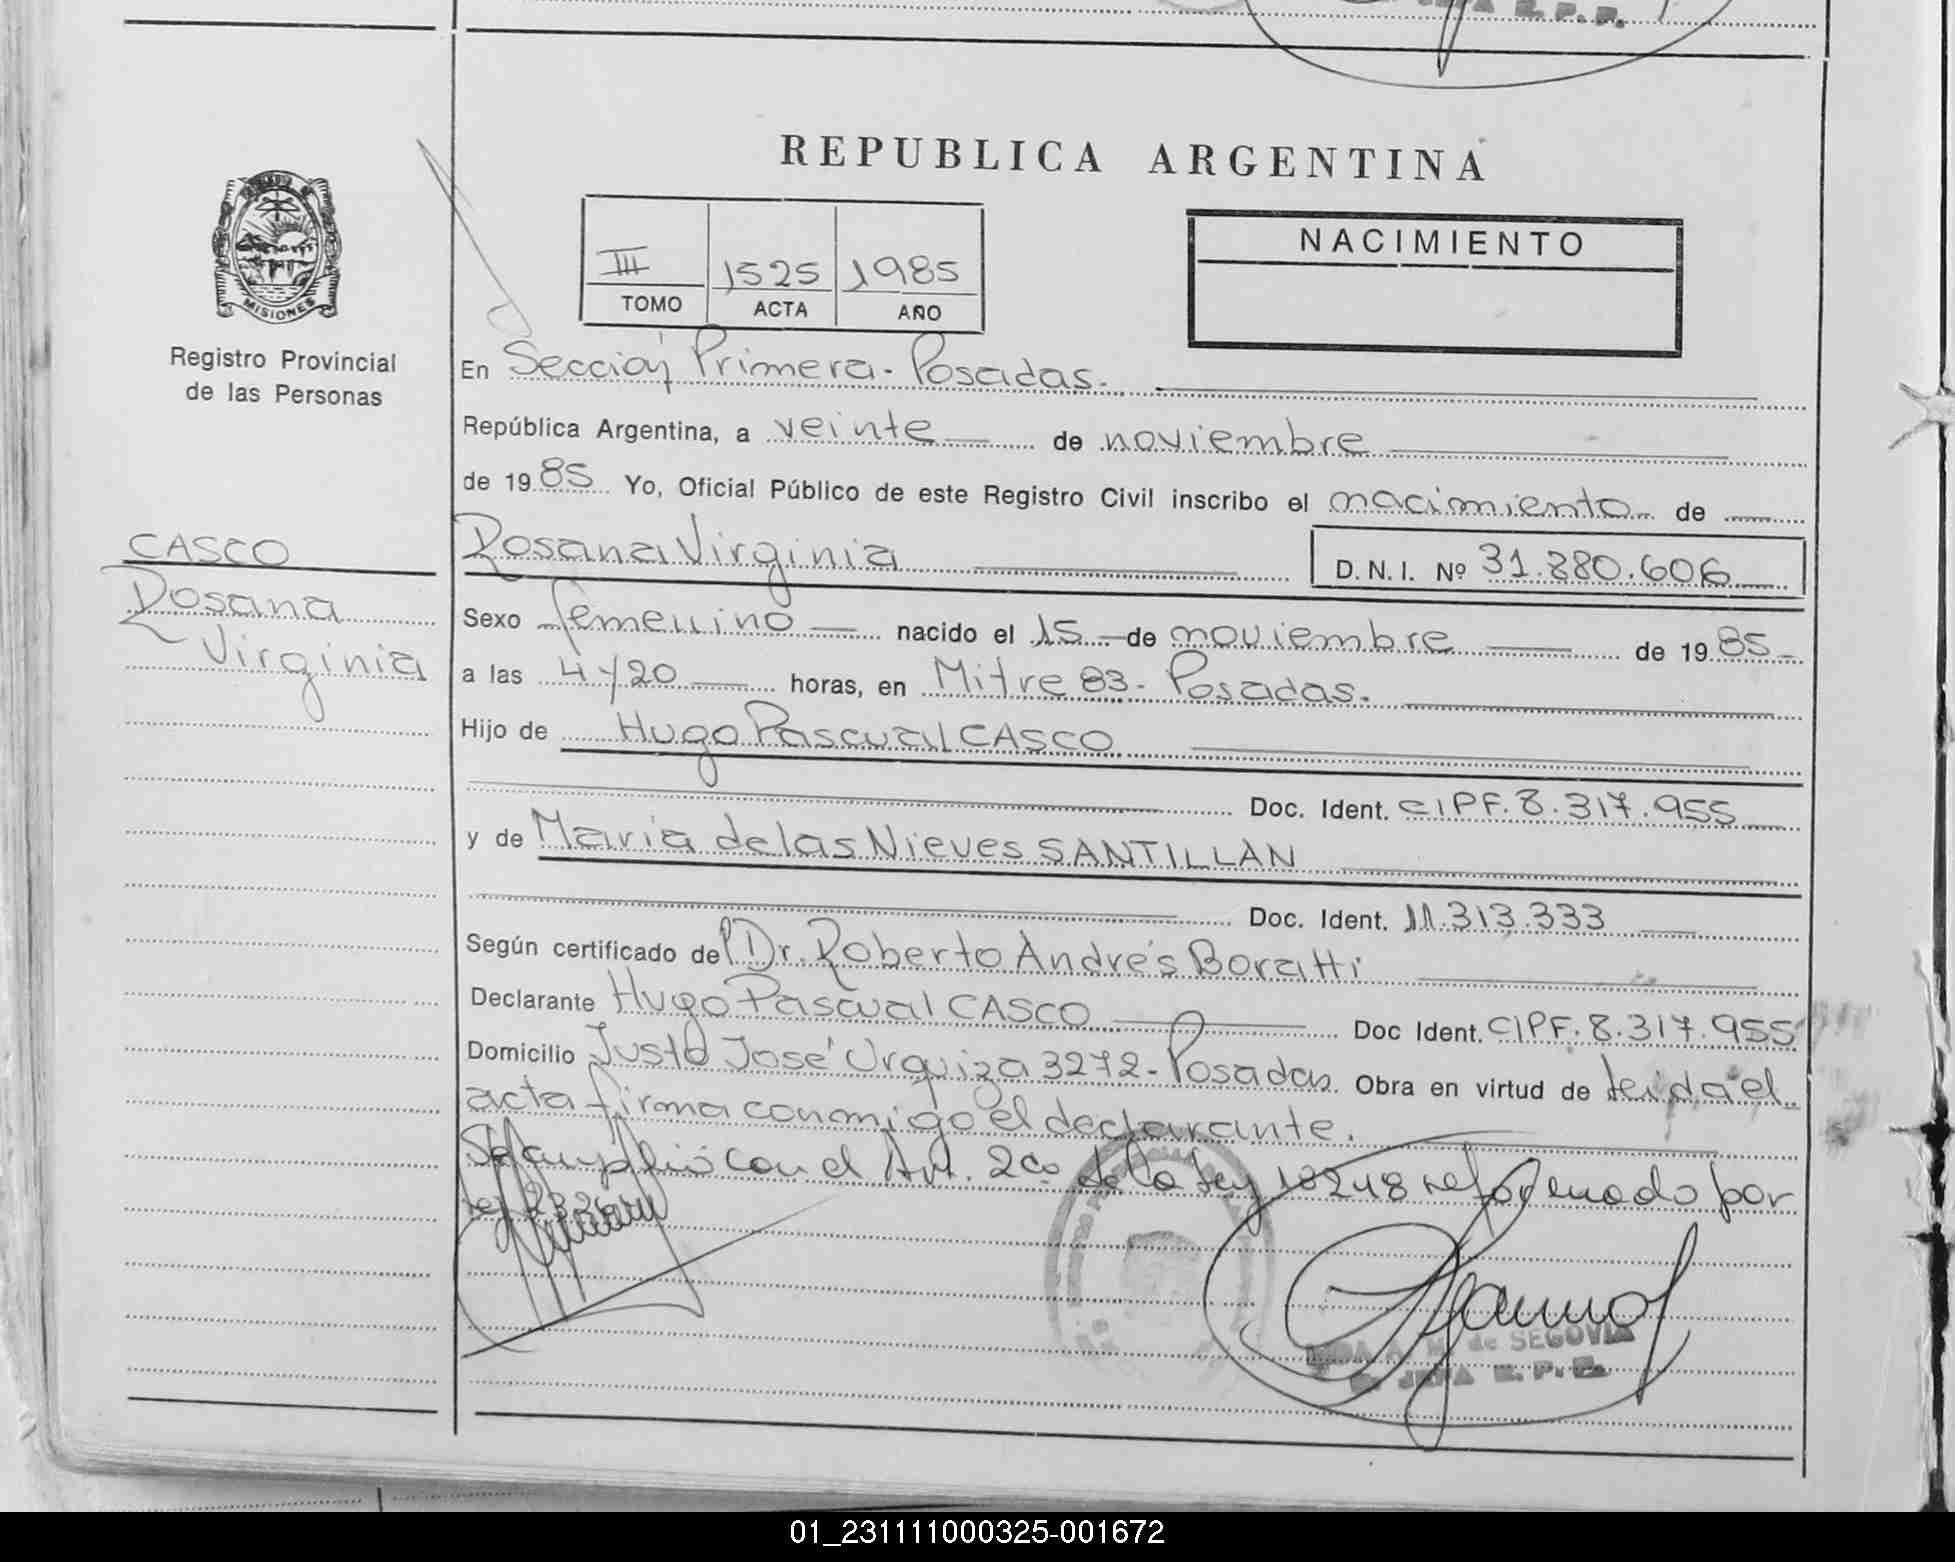 E. P. P.
REPUBLICA ARGENTINA
MISIONES
Registro Provincial
de las Personas
III 1525 1985
TOMO ACTA AÑO
NACIMIENTO
En Sección Primera - Posadas.
República Argentina, a veinte de noviembre
de 1985 Yo, Oficial Público de este Registro Civil inscribo el nacimiento de
CASCO
Rosana
Virginia
Rosana Virginia D.N.I. Nº 31.880.606
Sexo femenino nacido el 15 de noviembre de 1985
a las 4 y 20 horas, en Mitre 83 - Posadas.
Hijo de Hugo Pascual CASCO
Doc. Ident. CIPF. 8.317.955
y de María de las Nieves SANTILLAN
Doc. Ident. 11.313.333
Según certificado del Dr. Roberto Andrés Boratti
Declarante Hugo Pascual CASCO Doc Ident. CIPF. 8.317.955
Domicilio Justo José Urquiza 3272 - Posadas Obra en virtud de leída el
acta firma conmigo el declarante.
Se cumplió con el Art. 2do de la Ley 18248 reformado por
Ley
de SEGOVIA
JEFA E. P. P.
01_231111000325-001672